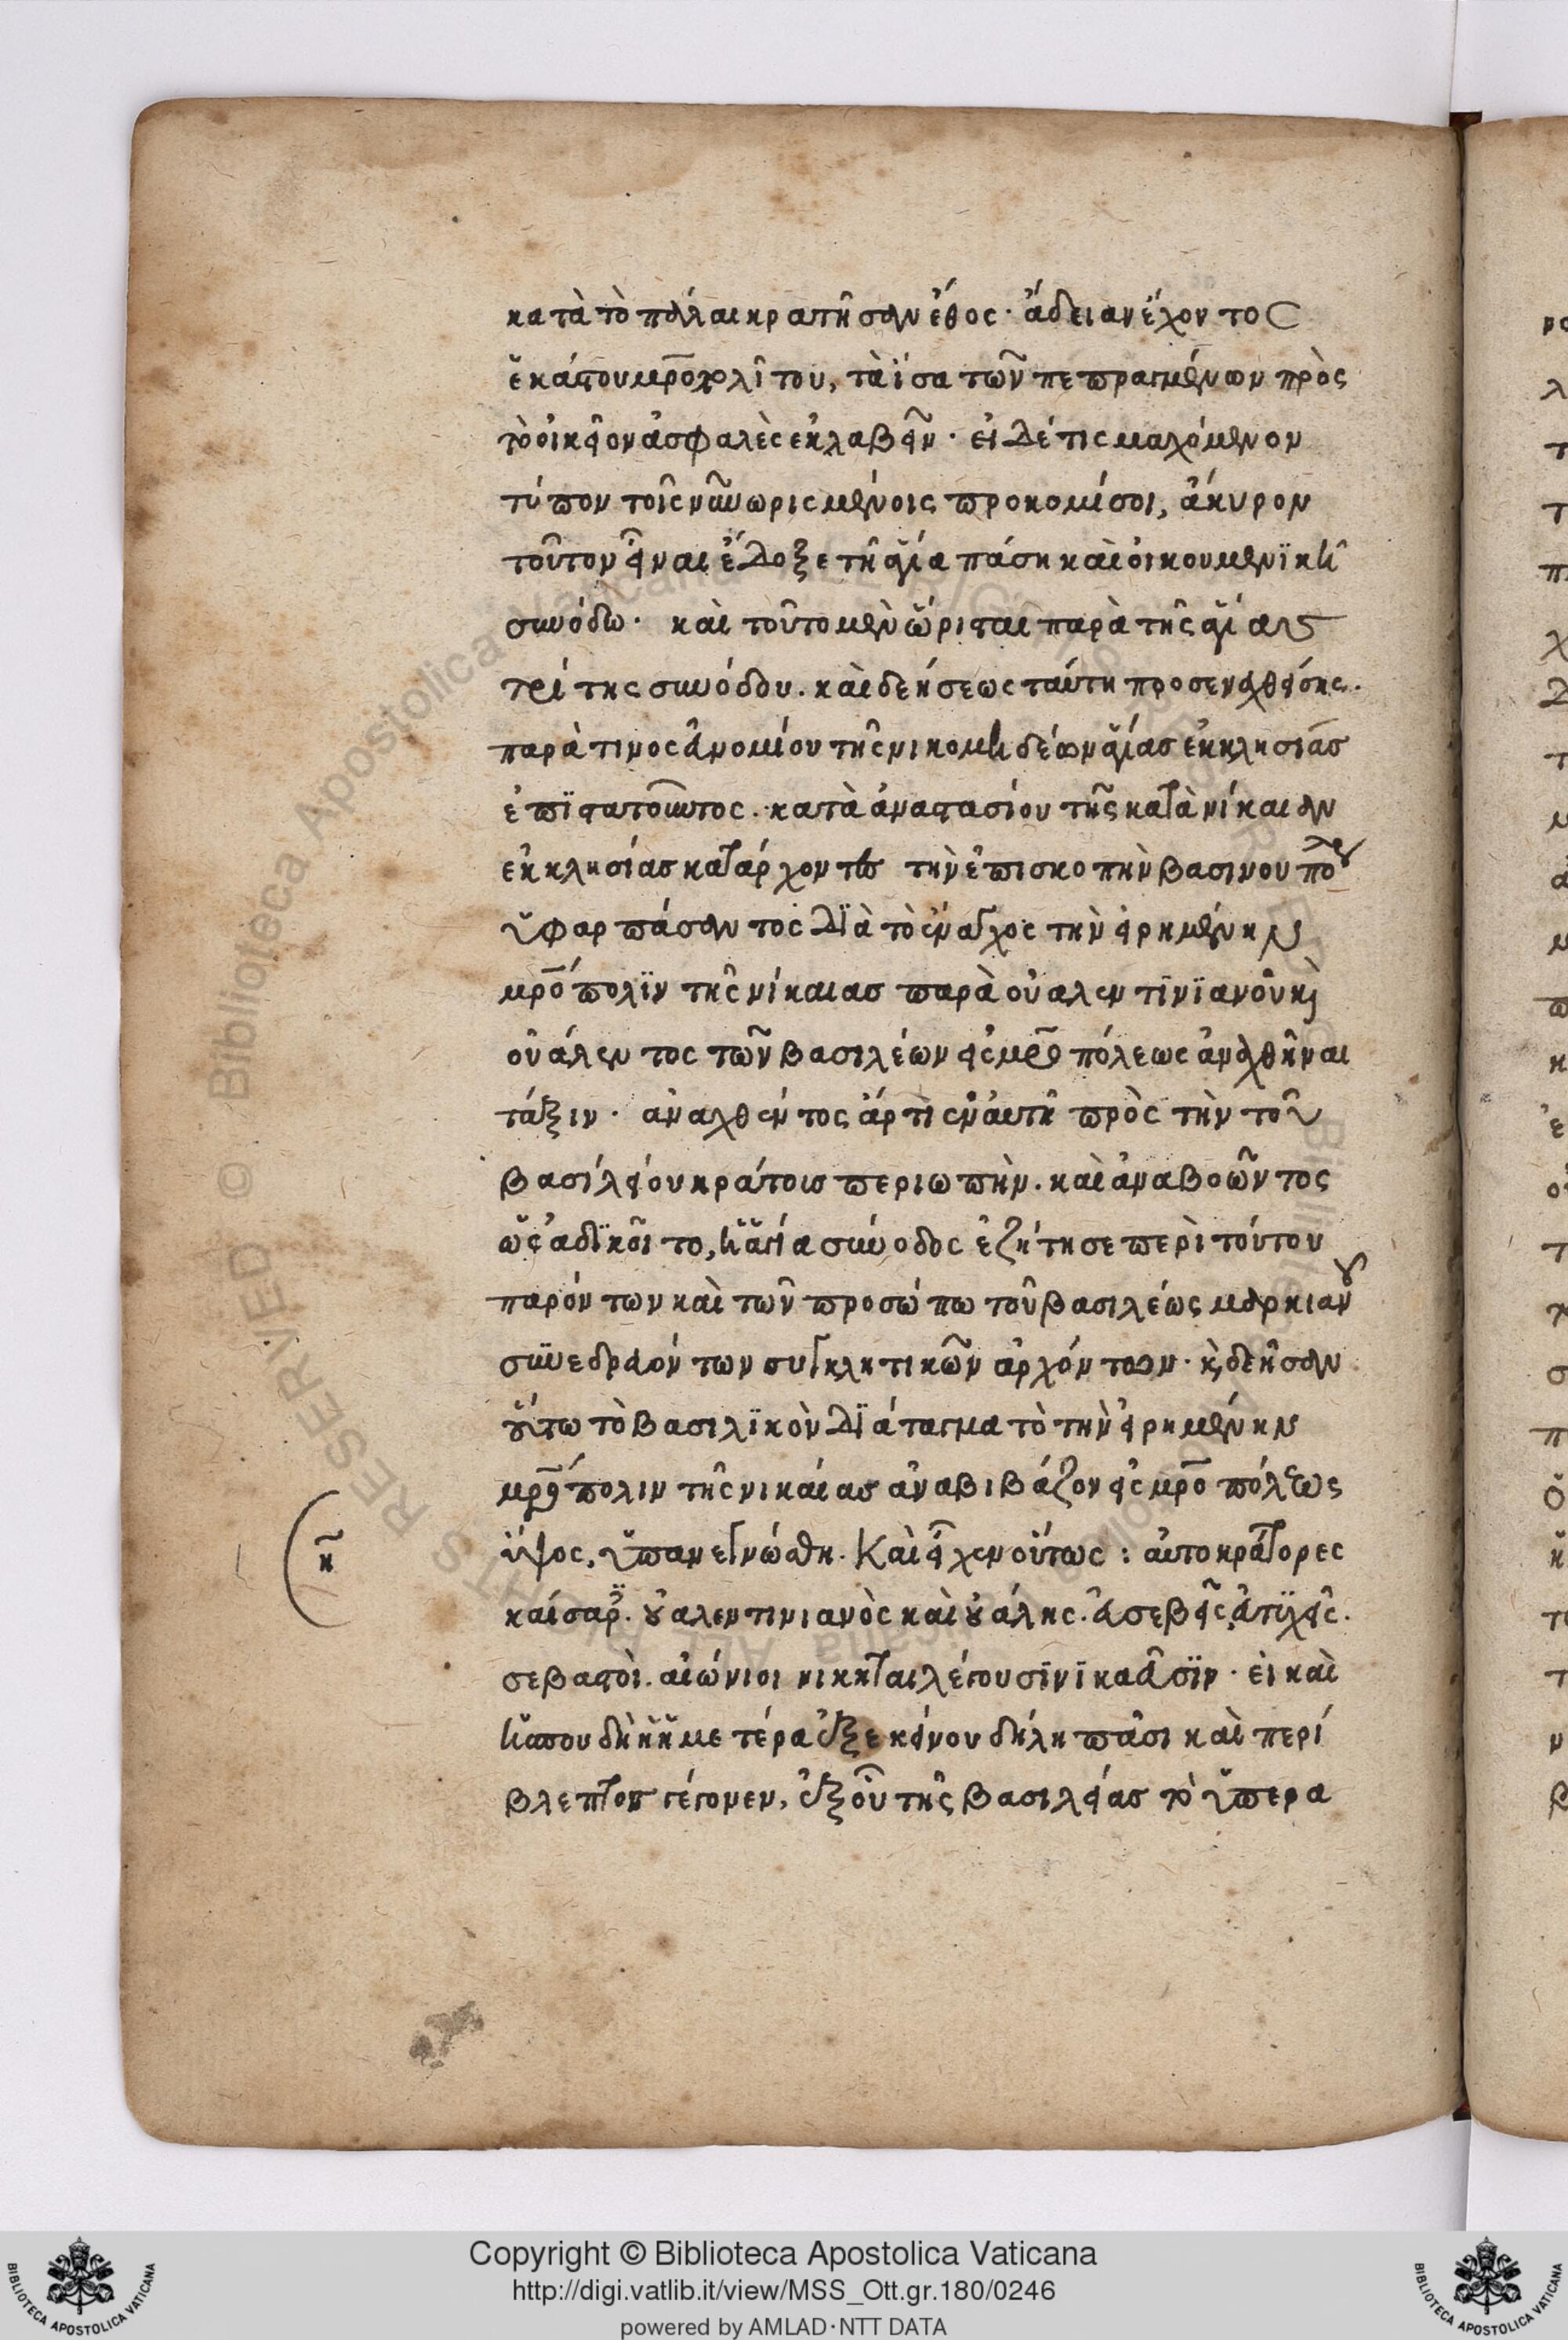 κατὰ τὸ πάλαι κρατῆσαν ἔθος· ἄδειαν ἔχοντος
ἑκάστου μροπολίτου, τὰ ἴσα τῶν πεπραγμένων πρὸς
τὸ οἰκεῖον ἀσφαλὲς ἐκλαβεῖν· εἰ δέ τις μαχόμενον
τύπον τοῖς νῦν ὡρισμένοις προκομίσοι, ἄκυρον
τοῦτον εἶναι ἔδοξε τῆ ἁγία πάση καὶ οἰκουμενϊκῆ
συνόδω· καὶ τοῦτο μὲν ὥρισται παρὰ τῆς ἁγίας
τρίτης συνόδου. καὶ δεήσεως ταύτη προσενεχθείσης.
παρά τινος εὐνομίου τῆς νικομηδέων ἁγίας ἐκκλησίας
ἐπϊστατοῦντος. κατὰ ἀναστασίου τῆς κατὰ νίκαιαν
ἐκκλησίας κατάρχοντος τὴν ἐπισκοπὴν βασινουπό
ὑφαρπάσαντος δϊὰ τὸ ἔναγχος τὴν εἰρημένην
μρόπολϊν τῆς νίκαιας παρὰ οὐαλεντϊνϊανοῦ κὶ
οὐάλεντος τῶν βασιλέων εἰς μροπόλεως ἀνεχθῆναι
τάξιν· ἀναχθέντος ἄρτι ἐν αὐτῆ πρὸς τὴν τοῦ
βασιλείου κράτους περιωπὴν. καὶ ἀναβοῶντος
ὡς ἀδϊκοῖτο, ἡ ἁγία σύνοδος ἐζήτησε περὶ τούτου
παρόντων καὶ τῶν προσώπω τοῦ βασιλέως μαρκιανοῦ
συνεδρευόντων συγκλητικῶν ἀρχόντων· κὶ δεῆσαν
οὕτω τὸ βασιλϊκὸν δϊάταγμα τὸ τὴν εἰρημένην
μρόπολιν τῆς νικαίας ἀναβιβάζον εἰς μροπόλεως
ὕψος, ὑπανεγνώσθη. Καὶ εἶχεν οὕτως : αὐτοκράτορες
κ
καίσαρ. οὐαλεντινιανὸς καὶ οὐάλης. εὐσεβεῖς, εὐτϋχεῖς.
σεβαστοὶ. αἰώνιοι νικηταὶ λέγουσϊν ϊκαεῦσϊν· εἰ καὶ
ἡ σπουδὴ ἡ ἡμετέρα ἐξ ἐκείνου δήλη πᾶσι καὶ περί
βλεπτος γέγονεν, ἐξ οὗ τῆς βασιλείας τὸ ὑπερα
Copyright © Biblioteca Apostolica Vaticana
http://digi.vatlib.it/view/MSS_Ott.gr.180/0246
powered by AMLAD·NTT DATA